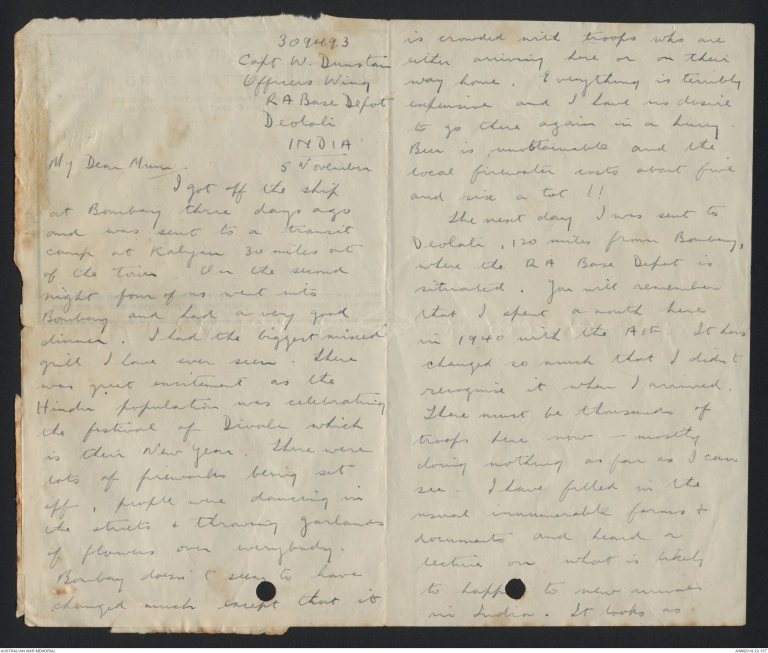 309493
Capt. W. Dunstan
Officers Wing
RA Base Depot
Deolali
INDIA
5 November
My Dear Mum.
I got off the ship
at Bombay three days ago
and was sent to a transit
camp at Kalyan 30 miles out
of the town. On the second
night four of us went into
Bombay and had a very good
dinner. I had the biggest mixed
grill I have ever seen. There
was great excitement as the
Hindu population was celebrating
the festival of Divali which
is their New Year. There were
lots of fireworks being set
off, people were dancing in
the streets & throwing garlands
of flowers over everybody.
Bombay doesn't seem to have
changed much except that it
is crowded with troops who are
either arriving here or on their
way home. Everything is terribly
expensive and I have no desire
to go there again in a hurry.
Beer is unobtainable and the
local firewater costs about five
and six a tot !!
The next day I was sent to
Deolali, 120 miles from Bombay,
where the RA Base Depot is
situated. You will remember
that I spent a month here
in 1940 with the AIF. It has
changed so much that I didn't
recognise it when I arrived.
There must be thousands of
troops here now – mostly
doing nothing as far as I can
see. I have filled in the
usual innumerable forms &
documents and heard a
lecture on what is likely
to happen to new arrivals
in India. It looks as
AUSTRALIAN WAR MEMORIAL